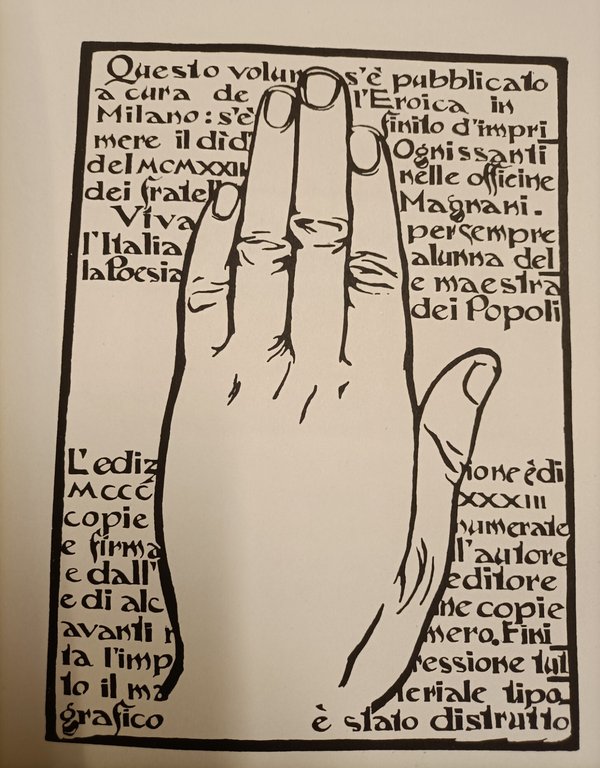 Questo volum s'è pubblicato
a cura de l'Eroica in
Milano: s'è finito d'impri_
mere il dì d' Ognissanti
del MCMXXII nelle officine
dei fratell Magnani.
Viva per sempre
l'Italia alunna del_
la Poesia e maestra
dei Popoli
L'ediz ione è di
MCCC XXXIII
copie numerate
e firma l'autore
e dall' editore
e di alc ne copie
avanti n mero. Fini_
ta l'imp ressione tut_
to il ma teriale tipo_
grafico è stato distrutto